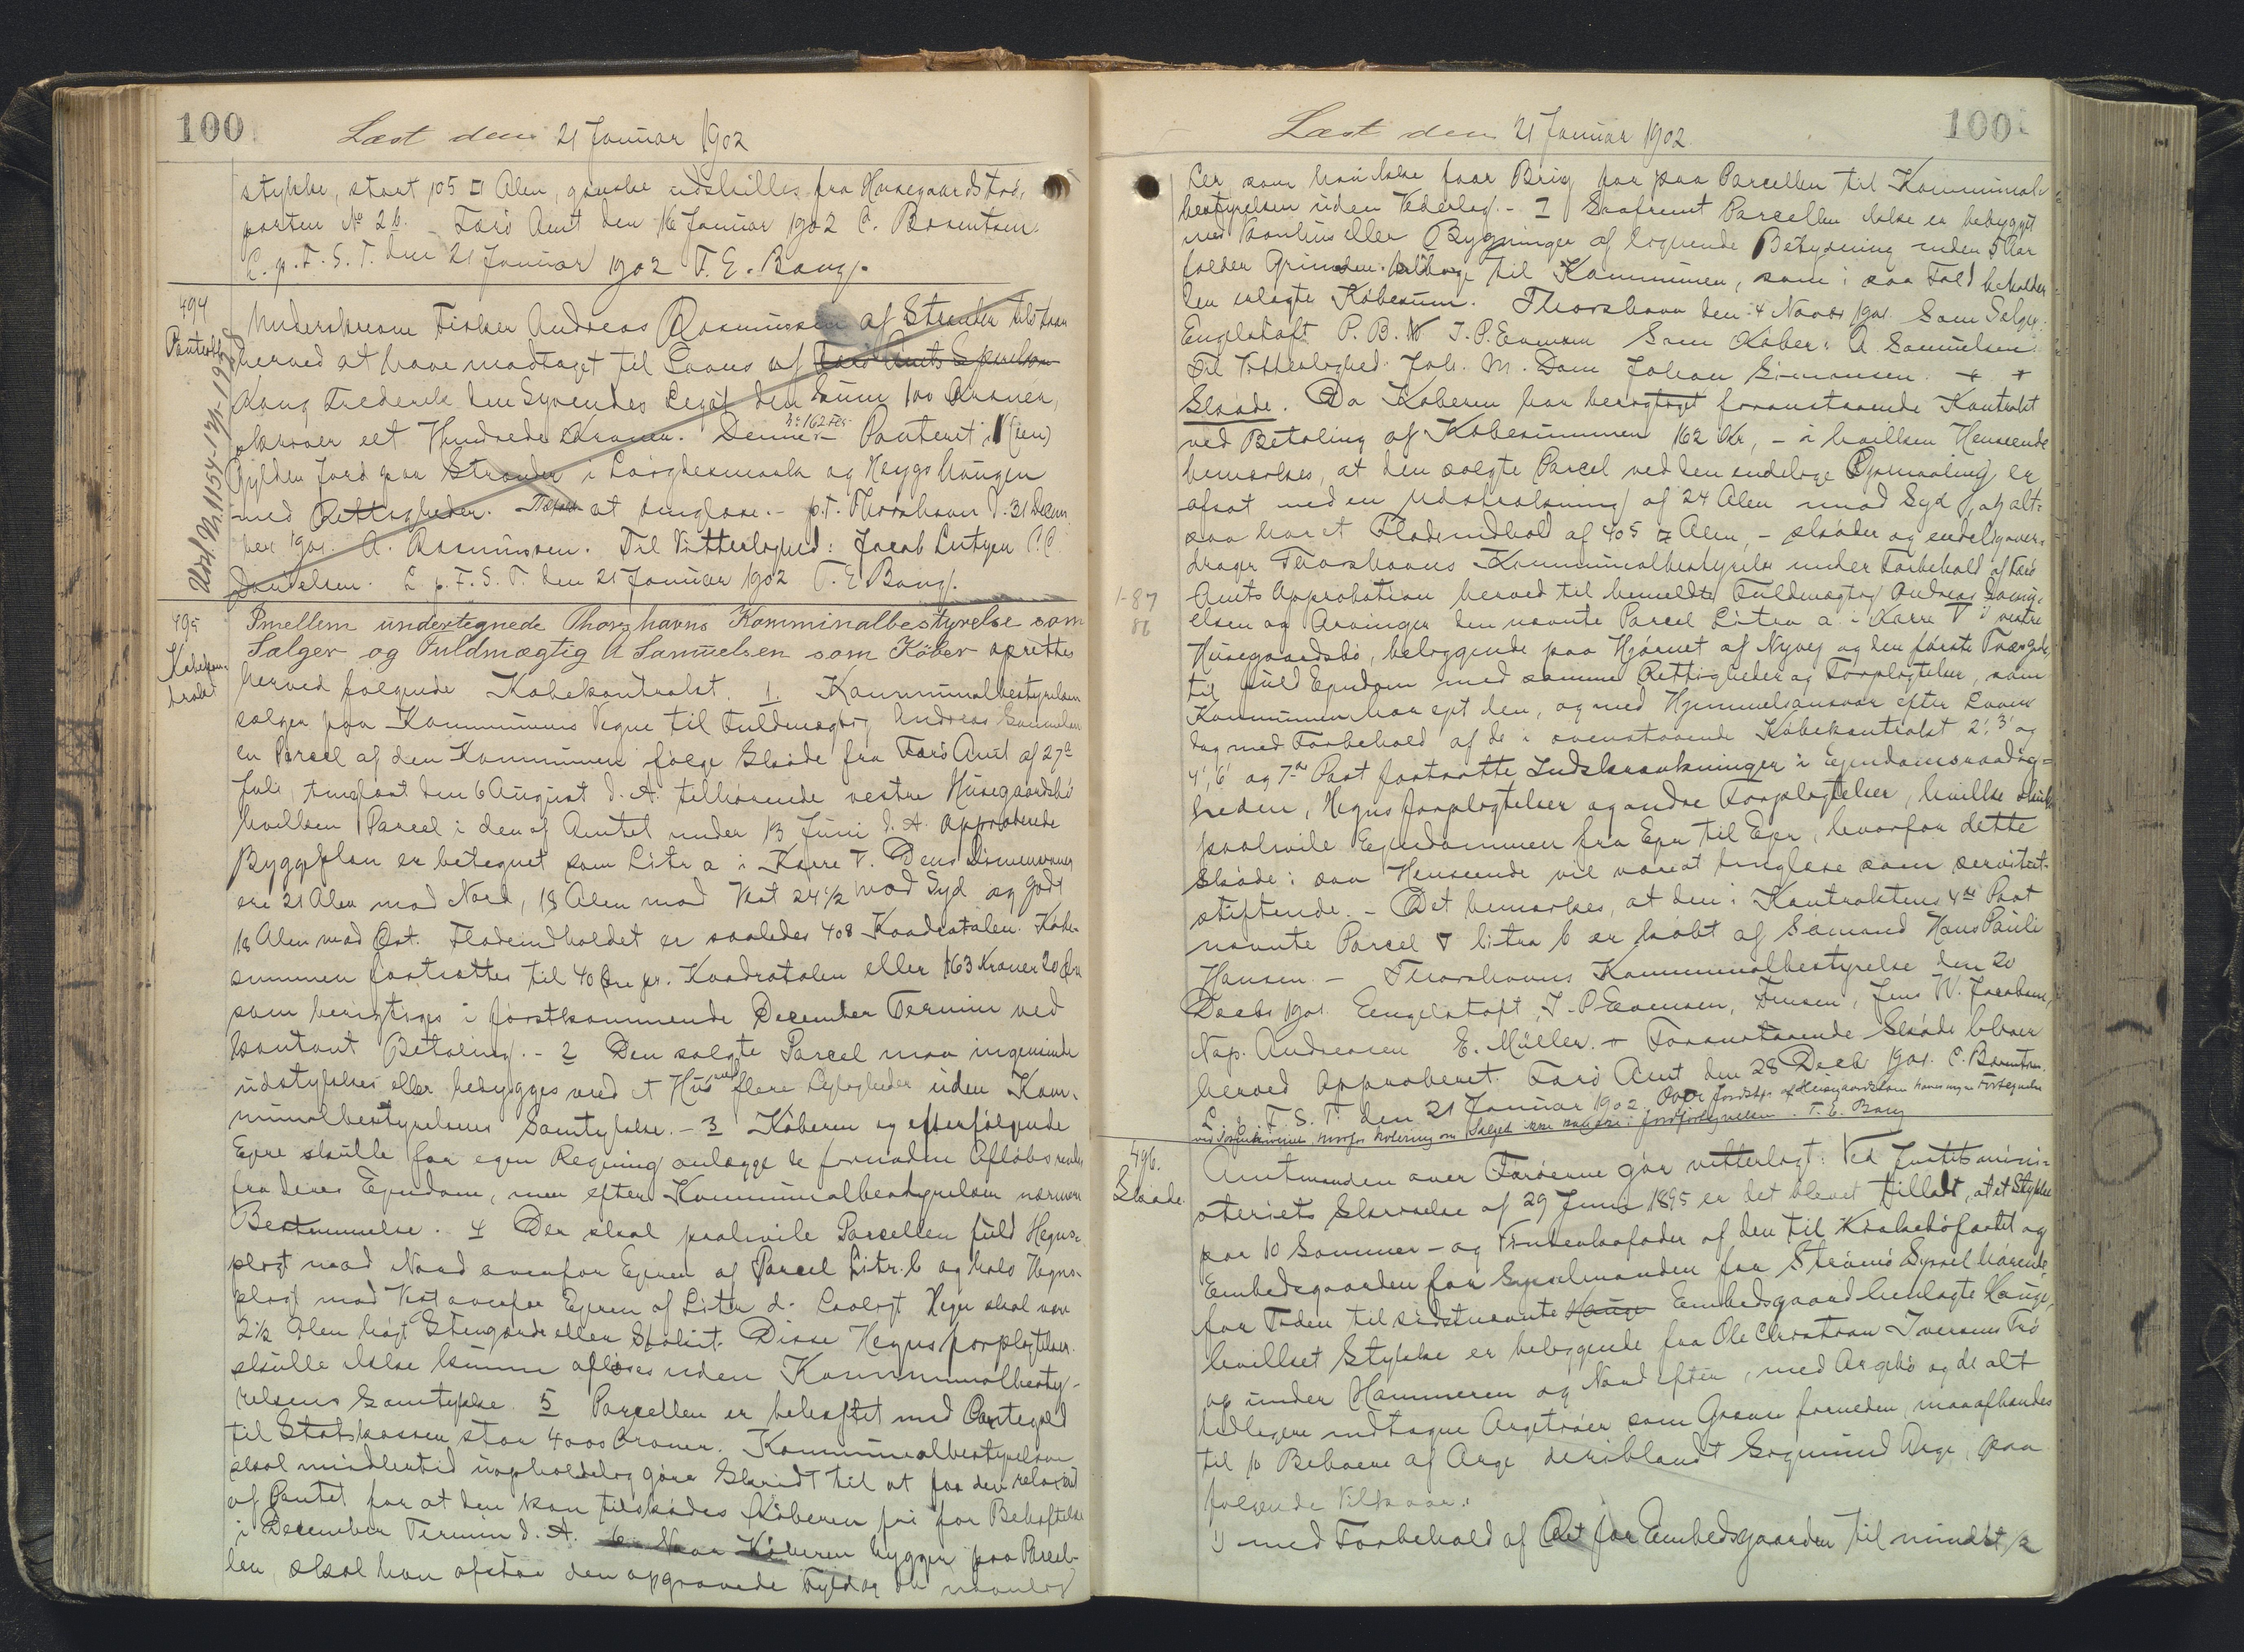 100
Læst den 21 Januar 1902
stykke, stort 105 □ Alen, ganske udskilles fra Husegaardstrø,
parten № 2 b. Færø Amt den 16 Januar 1902 C. Bærentsen.
L. p. F. S. T. den 21 Januar 1902 T. E. Bang.
494
Panteobl.
Udsl. N. 1154-13/1-19
Underskrevne Fisker Andreas Rasmussen af Strender tilstaar
herved at have modtaget til Laans af Færø Amts Sparekasse
Kong Frederik den Syvendes Legat den Sum 100 Kroner,
skriver et Hundrede Kroner. Denne Panteret i 1 (een)
Gylden Jord paa Strender i Lorgdesmark og Heygs haugen
med Rettigheder. at tinglæse. - p.t. Thorshavn d. 31 Decem
ber 1901. A. Rasmussen. Til Vitterlighed: Jacob Lutzen C. C.
Danielsen. L p. F. S. T. den 21 Januar 1902 T. E Bang.
495
Købekon-
trakt
Imellem undertegnede Thorshavns Kommunalbestyrelse som
Sælger og Fuldmægtig A Samuelsen som Køber oprettes
herved følgende Købekontrakt. 1. Kommunalbestyrelsen
sælger paa Kommunens Vegne til Fuldmægtig Andreas Samuelsen
en Parcel af den Kommunen ifølge Skøde fra Færø Amt af 27de
Juli, tinglæst den 6 August d. A. tilhørende vestre Húsegaardsbø
hvilken Parcel i den af Amtet under 13 Juni d. A. approberede
Byggeplan er betegnet som Litr a i Karre V. Dens Dimensioner
ere 21 Alen mod Nord, 18 Alen mod Vest 24 1/2 mod Syd og godt
18 Alen mod Øst. Fladeindholdet er saaledes 408 Kvadratalen. Købe-
summen fastsættes til 40 Øre pr. Kvadratalen eller 163 Kroner 20 Øre
som berigtiges i førstkommende December Termin ved
kontant Betaling. - 2 Den solgte Parcel maa ingensinde
udstykkes eller bebygges med et Hus med flere Lejligheder uden Kom-
munalbestyrelsens Samtykke. - 3 Køberen og efterfølgende
Ejere skulle for egen Regning anlægge de fornødne Afløbsrender
fra deres Ejendom, men efter Kommunalbestyrelsens nærmere
Bestemmelse. 4 Der skal paahvile Parcellen fuld Hegns-
pligt mod Nord ovenfor Ejeren af Parcel Litr. b og halv Hegns-
pligt mod Vest ovenfor Ejeren af Litr d. Lovligt Hegn skal være
2 1/2 Alen højt Stengærde eller Stakit. Disse Hegnsforpligtelser
skulle ikke kunne afløses uden Kommunalbesty-
relsens Samtykke. 5 Parcellen er behæftet med Pantegæld
til Statskassen stor 4000 Kroner. Kommunalbestyrelsen
skal imidlertid uopholdelig gøre Skridt til at faa den relaxeret
af Pantet for at den kan tilskødes Køberen fri for Behæftelse
i December Termin d. A. 6. Naar Køberen bygger paa Parcel-
len, skal han afstaa den opgravede Fyld og de
100
Læst den 21 Januar 1902
ler som han ikke faar Brug for paa Parcellen til Kommunal-
bestyrelsen uden Vederlag. - 7 Saafremt Parcellen ikke er bebygget
med Vaanhus eller Bygninger af lignende Betydning inden 5 Aar
falder Grunden tilbage til Kommunen, som i saa Fald beholder
den erlagte Købesum. Thorshavn den 4 Novbr 1901. Som Sælger:
Engelstoft P. B. J. P. Evensen Som Køber: A. Samuelsen.
Til Vitterlighed: Joh. M. Dam Johan Simonsen. + +
Skøde. Da Køberen har berigtiget foranstaaende Kontrakt
ved Betaling af Købesummen 162 Kr, - i hvilken Henseende
bemærkes, at den solgte Parcel ved den endelige Opmaaling er
afsat med en Udstrækning af 24 Alen mod Syd, og alt-
saa har et Fladeindhold af 405 □ Alen, - skøder og endelig over-
drager Thorshavns Kommunalbestyrelse under Forbehold af Færø
1-87
86
Amts Approbation herved til bemeldte Fuldmægtig Andreas Samu-
elsen og Arvinger den nævnte Parcel Litra a i Karre V i vestre
Húsegaardsbø, beliggende paa Hjørnet af Nyvej og den første Tværgade,
til fuld Ejendom med samme Rettigheder og Forpligtelser, som
Kommunen har ejet den, og med Hjemmelsansvar efter Loven
dog med Forbehold af de i ovenstaaende Købekontrakt 2', 3' og
4', 6' og 7de Post fastsatte Indskrænkninger i Ejendomsraadig-
heden, Hegnsforpligtelser og andre Forpligtelser, hvilke skulle
paahvile Ejendommen fra Ejer til Ejer, hvorfor dette
Skøde i saa Henseende vil være at tinglæse som servitut-
stiftende. - Det bemærkes, at den i Kontraktens 4de Post
nævnte Parcel V litra b er købt af Sømand Hans Pauli
Hansen - Thorshavns Kommunalbestyrelse den 20
Decbr 1901. Engelstoft, J. P Evensen, Finsen, Jens W. Jacobsen,
Nap. Andreasen E. Müller. + Foranstaaende Skøde bliver
herved approberet. Færø Amt den 28 Decbr 1901. C. Bærentsen.
L. p. F. S. T. den 21 Januar 1902. Over Jordstyk. af Húsegaardsbøen haves ingen Fortegnelse
ved Sorenskriveriet, hvorfor Notering om Salget ikke kan ske i Jordfortegnelsen. T. E. Bang
496.
Skøde.
Amtmanden over Færøerne gør vitterligt: Ved Justitsmini-
steriets Skrivelse af 29 Juni 1895 er det blevet tilladt, at et Stykke
paa 10 Sommer- og Vinterkofoder af den til Kirkebøfæstet og
Embedsgaarden for Sysselmanden for Strømø Syssel hørende,
for Tiden til sidstnævnte Hauge Embedsgaard henlagte Hauge,
hvilket Stykke er beliggende fra Ole Christian Iversens Trø
op under Hammeren og Nord efter, med Argebø og de alt
tidligere indtagne Argetrøer som Grænse forneden, maa afhændes
til 10 Beboere af Arge deriblandt Sigmund Arge, paa
følgende Vilkaar:
1) med Forbehold af Ret for Embedsgaarden til mindst 1/2